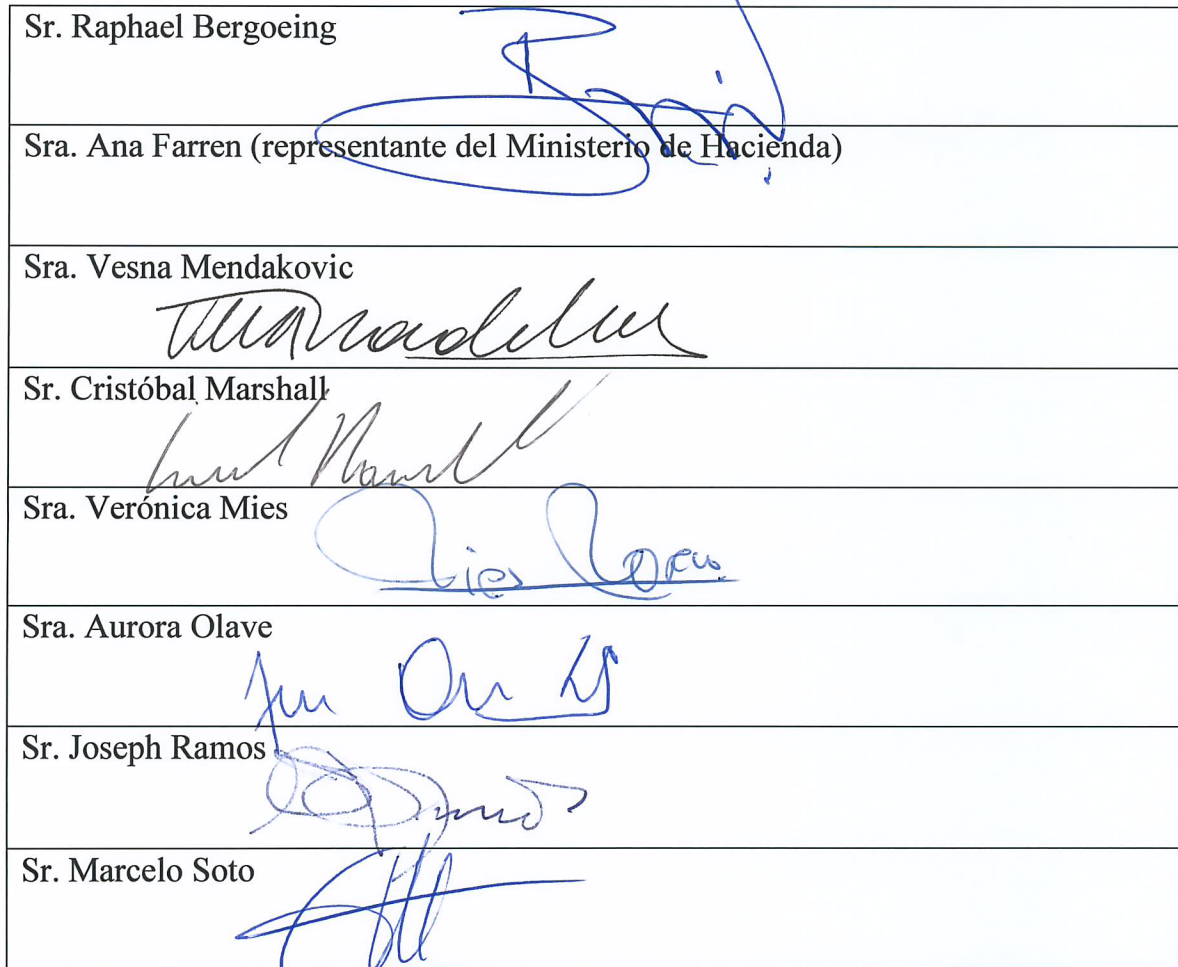 Sr. Raphael Bergoeing
Sra. Ana Farren (representante del Ministerio de Hacienda)
Sra. Vesna Mendakovic
Sr. Cristóbal Marshall
Sra. Verónica Mies
Sra. Aurora Olave
Sr. Joseph Ramos
Sr. Marcelo Soto